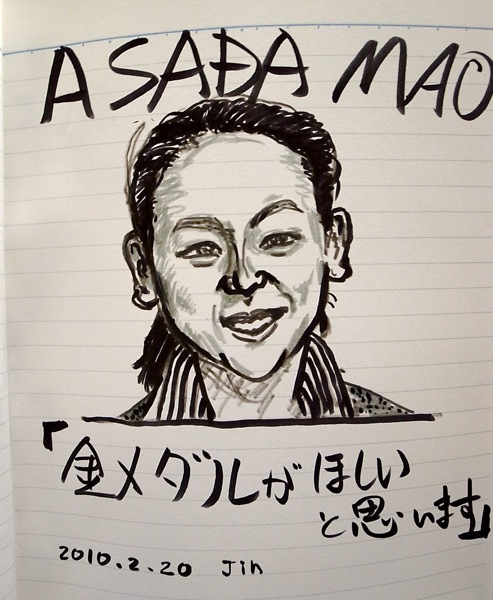 ASADA MAO
「金メダルがほしい
と思います」
2010.2.20 Jin